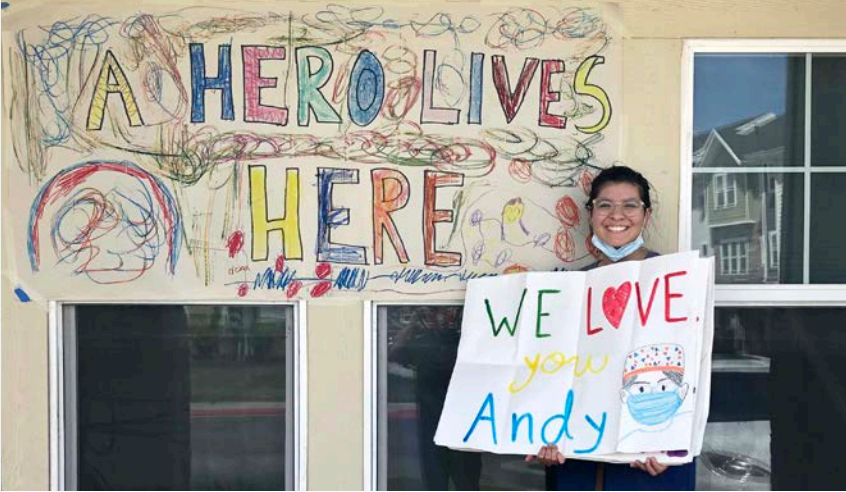 A HERO LIVES
HERE
WE LOVE.
you
Andy